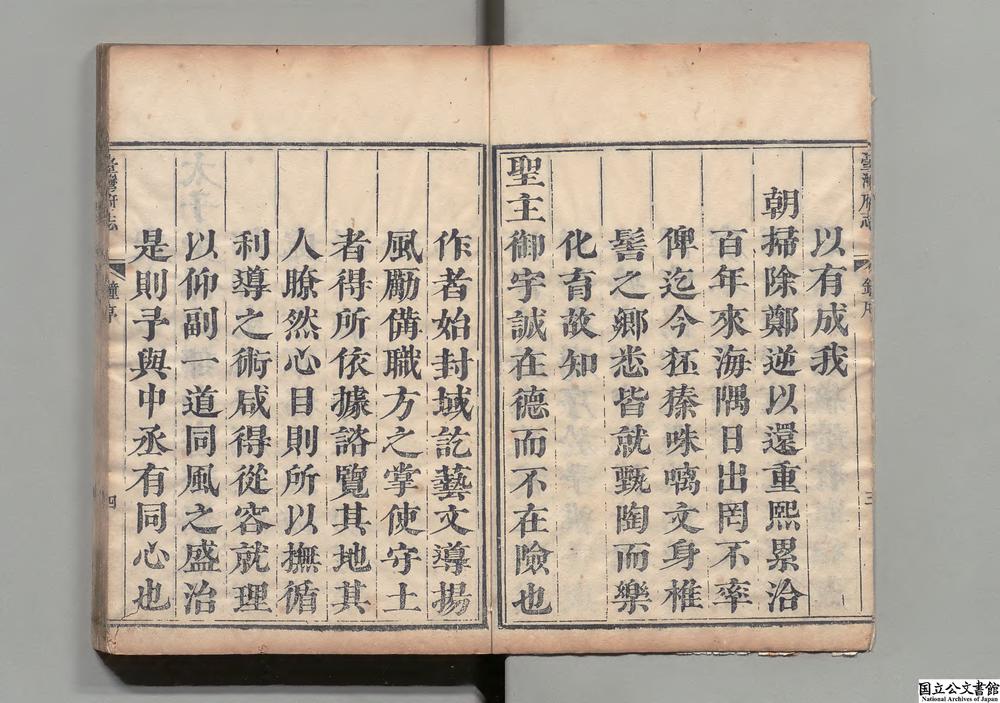 以有成我
朝掃除鄭逆以還重熙累洽
百年來海隅日出罔不率
俾迄今狉獉咮𠿒文身椎
髻之鄉悉皆就甄陶而樂
化育故知
聖主御宇誠在德而不在險也
臺灣府志
三
作者始封域訖藝文導揚
風勵備職方之掌使守土
者得所依據諮覽其地其
人瞭然心目則所以撫循
利導之術咸得從容就理
以仰副一道同風之盛治
是則予與中丞有同心也
臺灣府志
鐘序
四
国立公文書館
National Archives of Japan